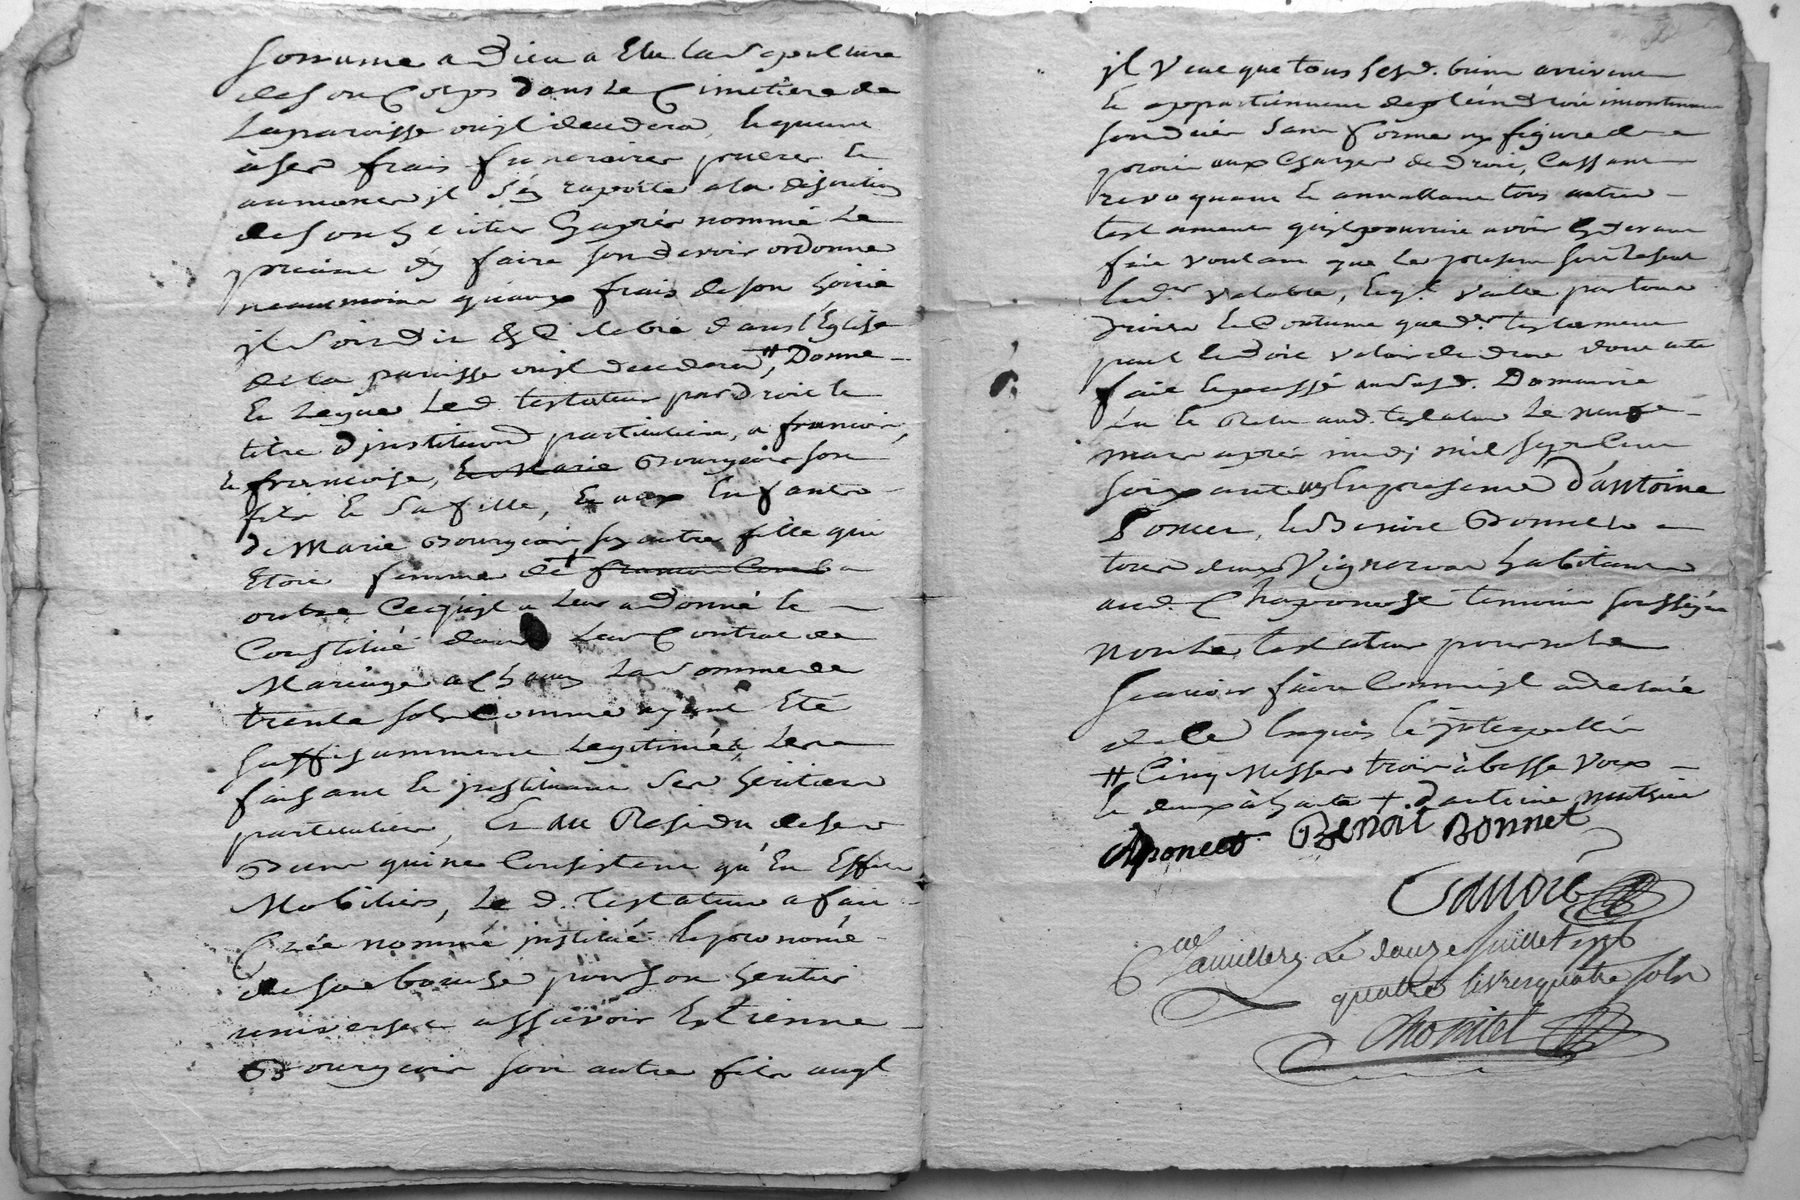 son ame a Dieu a Elu la Sepulture
de son Corps dans le Cimetiere de
la paroisse ou jl decedera, le quant
à ses frais funeraires prieres et
aumones jl s'en raporte a la discretion
de son heritier cy après nommé le
priant d'en faire son devoir ordonne
neantmoins qu'aux frais de son hoirie
jl soit dit & celebré dans l'Eglise
de la paroisse ou jl decedera #, Donne
Et Legue Led. testateur par droit et
titre d'jnstitution particuliere, a francois,
et francoise, et Marie Bourgeois son
fils et sa fille, et aux Enfants
de Marie Bourgeois, sa autre fille qui
Etoit femme de +
outre Ce qu'jl a leur a donné et
Constitué dans Leur Contrat de
Mariage a Chacun La somme de
trente sols comme ayant Eté
suffisamment Legitimés, les
faisant et jnstituant ses heritiers
particuliers, Et au Residu de ses
Biens qui ne Consistent qu'En Effets
Mobiliers, Le d. testateur a fait
Créé nommé jnstitué et prononcé
de sa bouche pour son heritier
universel assavoir Estienne
Bourgeois son autre fils auql
jl veut que tous sesd. biens arrivent
et appartiennent de plein droit incontinent
son deces sans forme ny figure de
proces aux Charges de droit, Cassant
revoquant et annullant tous autres
testaments qu'jl pourroit avoir cy devant
fait voulant que le present soit le seul
et dr. valable, et qu'jl vaille par tous
droits et Coutume que dr. testament
peut et doit valoir de droit dont acte
fait et passé aud. Domicile
Lu et Relu aud. testateur le neuf
mars après midy mil sept Cent
soixante en presence d'antoine
Poncet, et Benoit Bonnet
tous deux Vignerons habitants
aud. Chaponost temoins soussignés
non led. testateur pour ne le
scavoir faire Comme jl a declaré
de ce Enquis et jnterpellé
# Cinq Messes trois à basse voix
et deux à haute + d'antoine
Aponcet Benoit Bonnet
le douze Juillet
quatre livres quatre sols